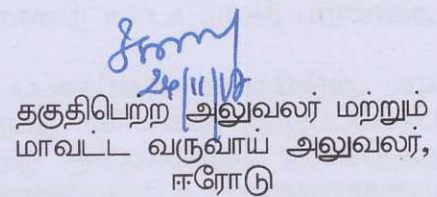 24/11/17
தகுதிபெற்ற அலுவலர் மற்றும்
மாவட்ட வருவாய் அலுவலர்,
ஈரோடு